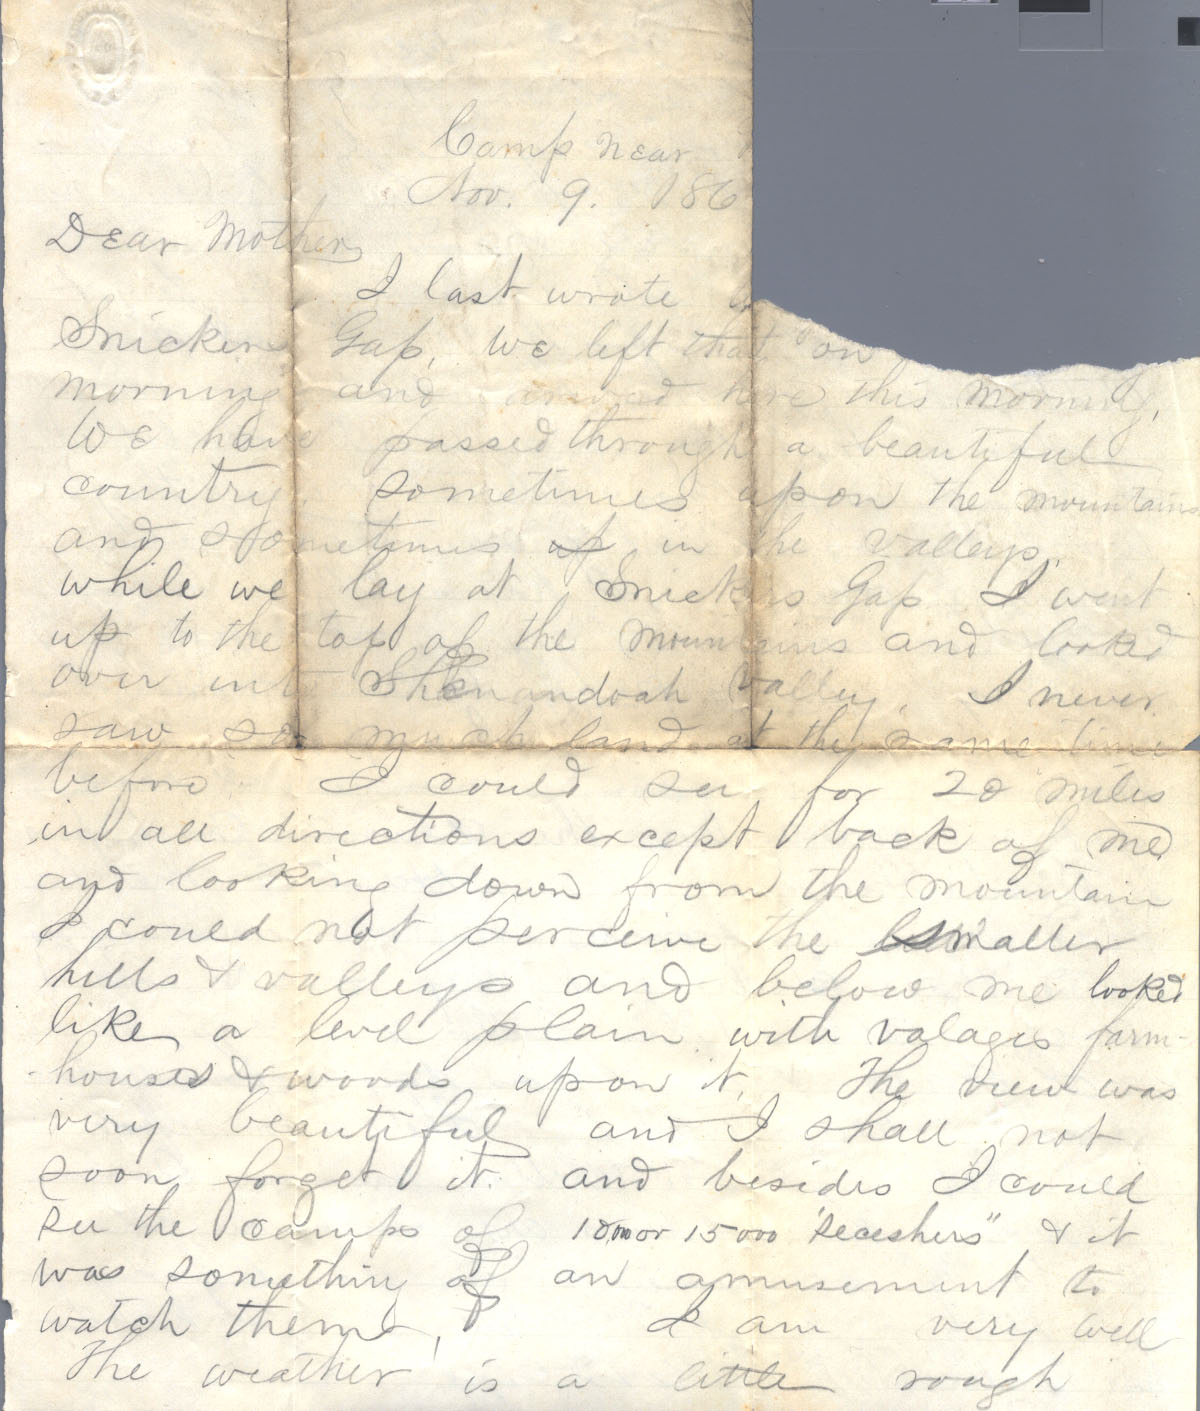 Camp near
Nov. 9. 186
Dear Mother,
I last wrote
Snickers Gap, We left that on
morning and arrived here this morning.
We have passed through a beautiful
country. sometimes upon the mountains
and sometimes up in the valleys.
while we lay at Snickers Gap I went
up to the top of the mountains and looked
over into Shenandoah Valley. I never
saw so much land at the same time
before. I could see for 20 miles
in all directions except back of me
and looking down from the mountain
I could not perceive the smaller
hills & valleys and below me looked
like a level plain with valages farm-
houses & woods upon it. The view was
very beautiful and I shall not
soon forget it. and besides I could
see the camps of 10000 or 15000 "seceshers" & it
was something of an amusement to
watch them, I am very well
The weather is a little rough